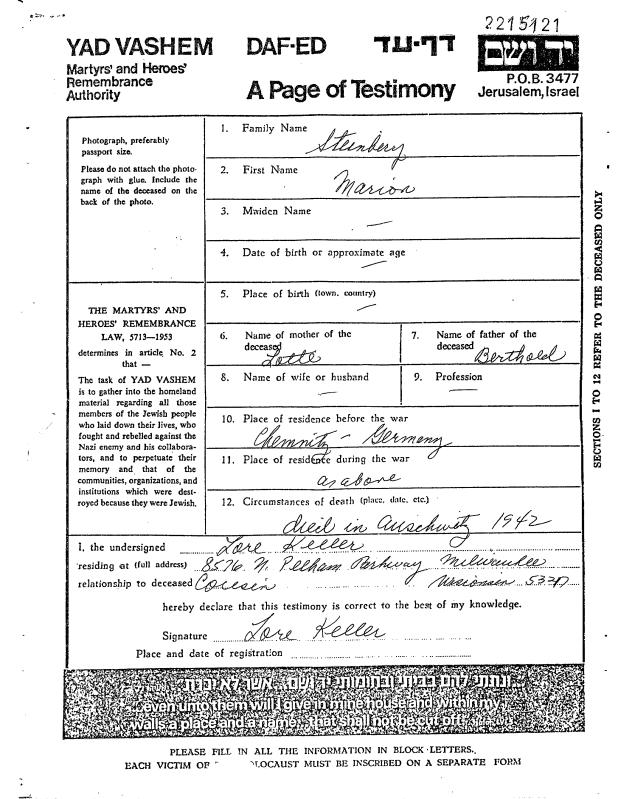 2215121
YAD VASHEM DAF-ED דף-עד
Martyrs' and Heroes'
Remembrance
Authority
A Page of Testimony
יד ושם
P.O.B. 3477
Jerusalem, Israel
Photograph, preferably
passport size.
Please do not attach the photo-
graph with glue. Include the
name of the deceased on the
back of the photo.
THE MARTYRS' AND
HEROES' REMEMBRANCE
LAW, 5713—1953
determines in article No. 2
that —
The task of YAD VASHEM
is to gather into the homeland
material regarding all those
members of the Jewish people
who laid down their lives, who
fought and rebelled against the
Nazi enemy and his collabora-
tors, and to perpetuate their
memory and that of the
communities, organizations, and
institutions which were dest-
royed because they were Jewish.
1. Family Name
Steinberg
2. First Name
Marion
3. Maiden Name
—
4. Date of birth or approximate age
—
5. Place of birth (town, country)
—
6. Name of mother of the
deceased
Lotte
7. Name of father of the
deceased
Berthold
8. Name of wife or husband
—
9. Profession
—
10. Place of residence before the war
Chemnitz - Germany
11. Place of residence during the war
as above
12. Circumstances of death (place, date, etc.)
died in Auschwitz 1942
I, the undersigned Lore Keller
residing at (full address) 8576 N. Pelham Parkway Milwaukee
Wisconsin
relationship to deceased Cousin
hereby declare that this testimony is correct to the best of my knowledge.
Signature Lore Keller
Place and date of registration
SECTIONS 1 TO 12 REFER TO THE DECEASED ONLY
ונתתי להם בביתי ובחומותי יד ושם... אשר לא יכרת.
...even unto them will I give in mine house and within my
walls a place and a name...that shall not be cut off.
PLEASE FILL IN ALL THE INFORMATION IN BLOCK LETTERS.
EACH VICTIM OF OLOCAUST MUST BE INSCRIBED ON A SEPARATE FORM